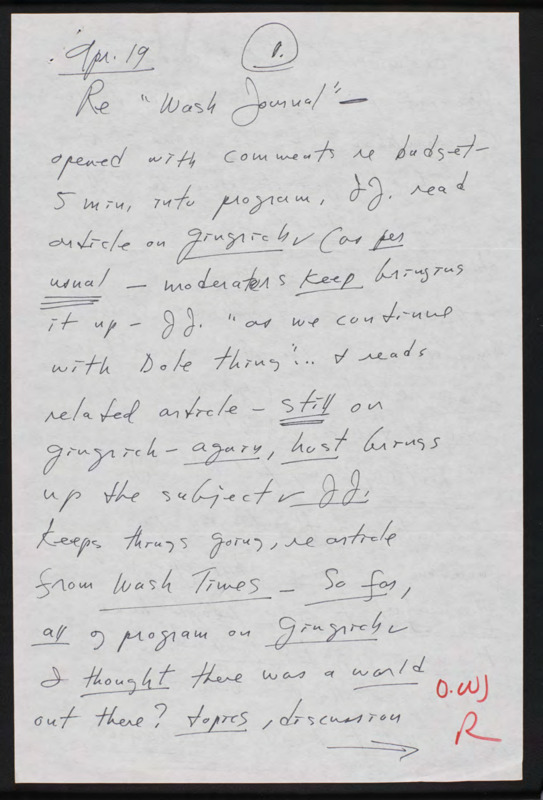 Apr. 19
1.
Re "Wash Journal" —
opened with comments re budget -
5 min, into program, JJ. read
article on gingrich (as per
usual — moderators keep bringing
it up - JJ. "as we continue
with Dole thing"... & reads
related article - still on
gingrich - again, host brings
up the subject JJ.
keeps things going, re article
from Wash Times - So far,
all of program on Gingrich
I thought there was a world
out there? topics, discussion
O.WJ
R